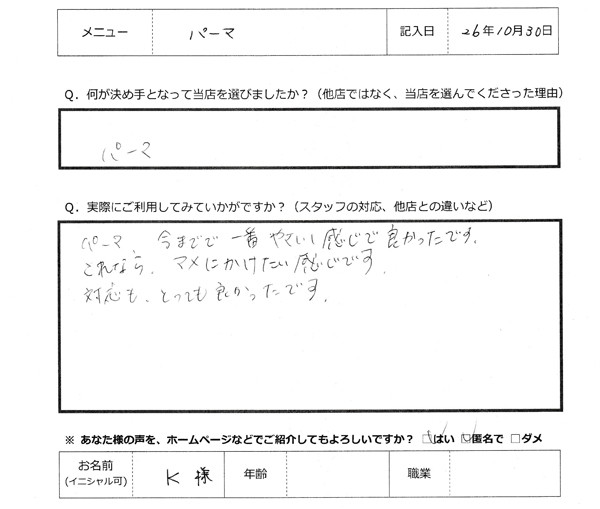 メニュー パーマ 記入日 26年10月30日
Q. 何が決め手となって当店を選びましたか？（他店ではなく、当店を選んでくださった理由）
パーマ
Q. 実際にご利用してみていかがですか？（スタッフの対応、他店との違いなど）
パーマ、今までで一番やさしい感じで良かったです。
これなら、マメにかけたい感じです。
対応も、とっても良かったです。
※ あなた様の声を、ホームページなどでご紹介してもよろしいですか？ □はい □匿名で □ダメ
お名前 K 様 年齢 職業
(イニシャル可)